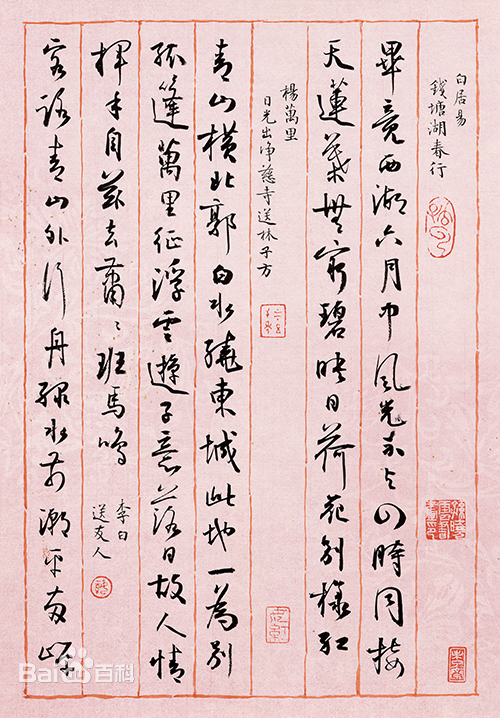 白居易
錢塘湖春行
畢竟西湖六月中風光不与四時同接
天蓮葉無窮碧映日荷花別樣紅
楊萬里
日光出淨慈寺送林子方
青山橫北郭白水繞東城此地一為別
孤篷萬里征浮雲遊子意落日故人情
揮手自茲去蕭〻班馬鳴
李白
送友人
客路青山外行舟綠水前潮平兩岸
Baidu百科